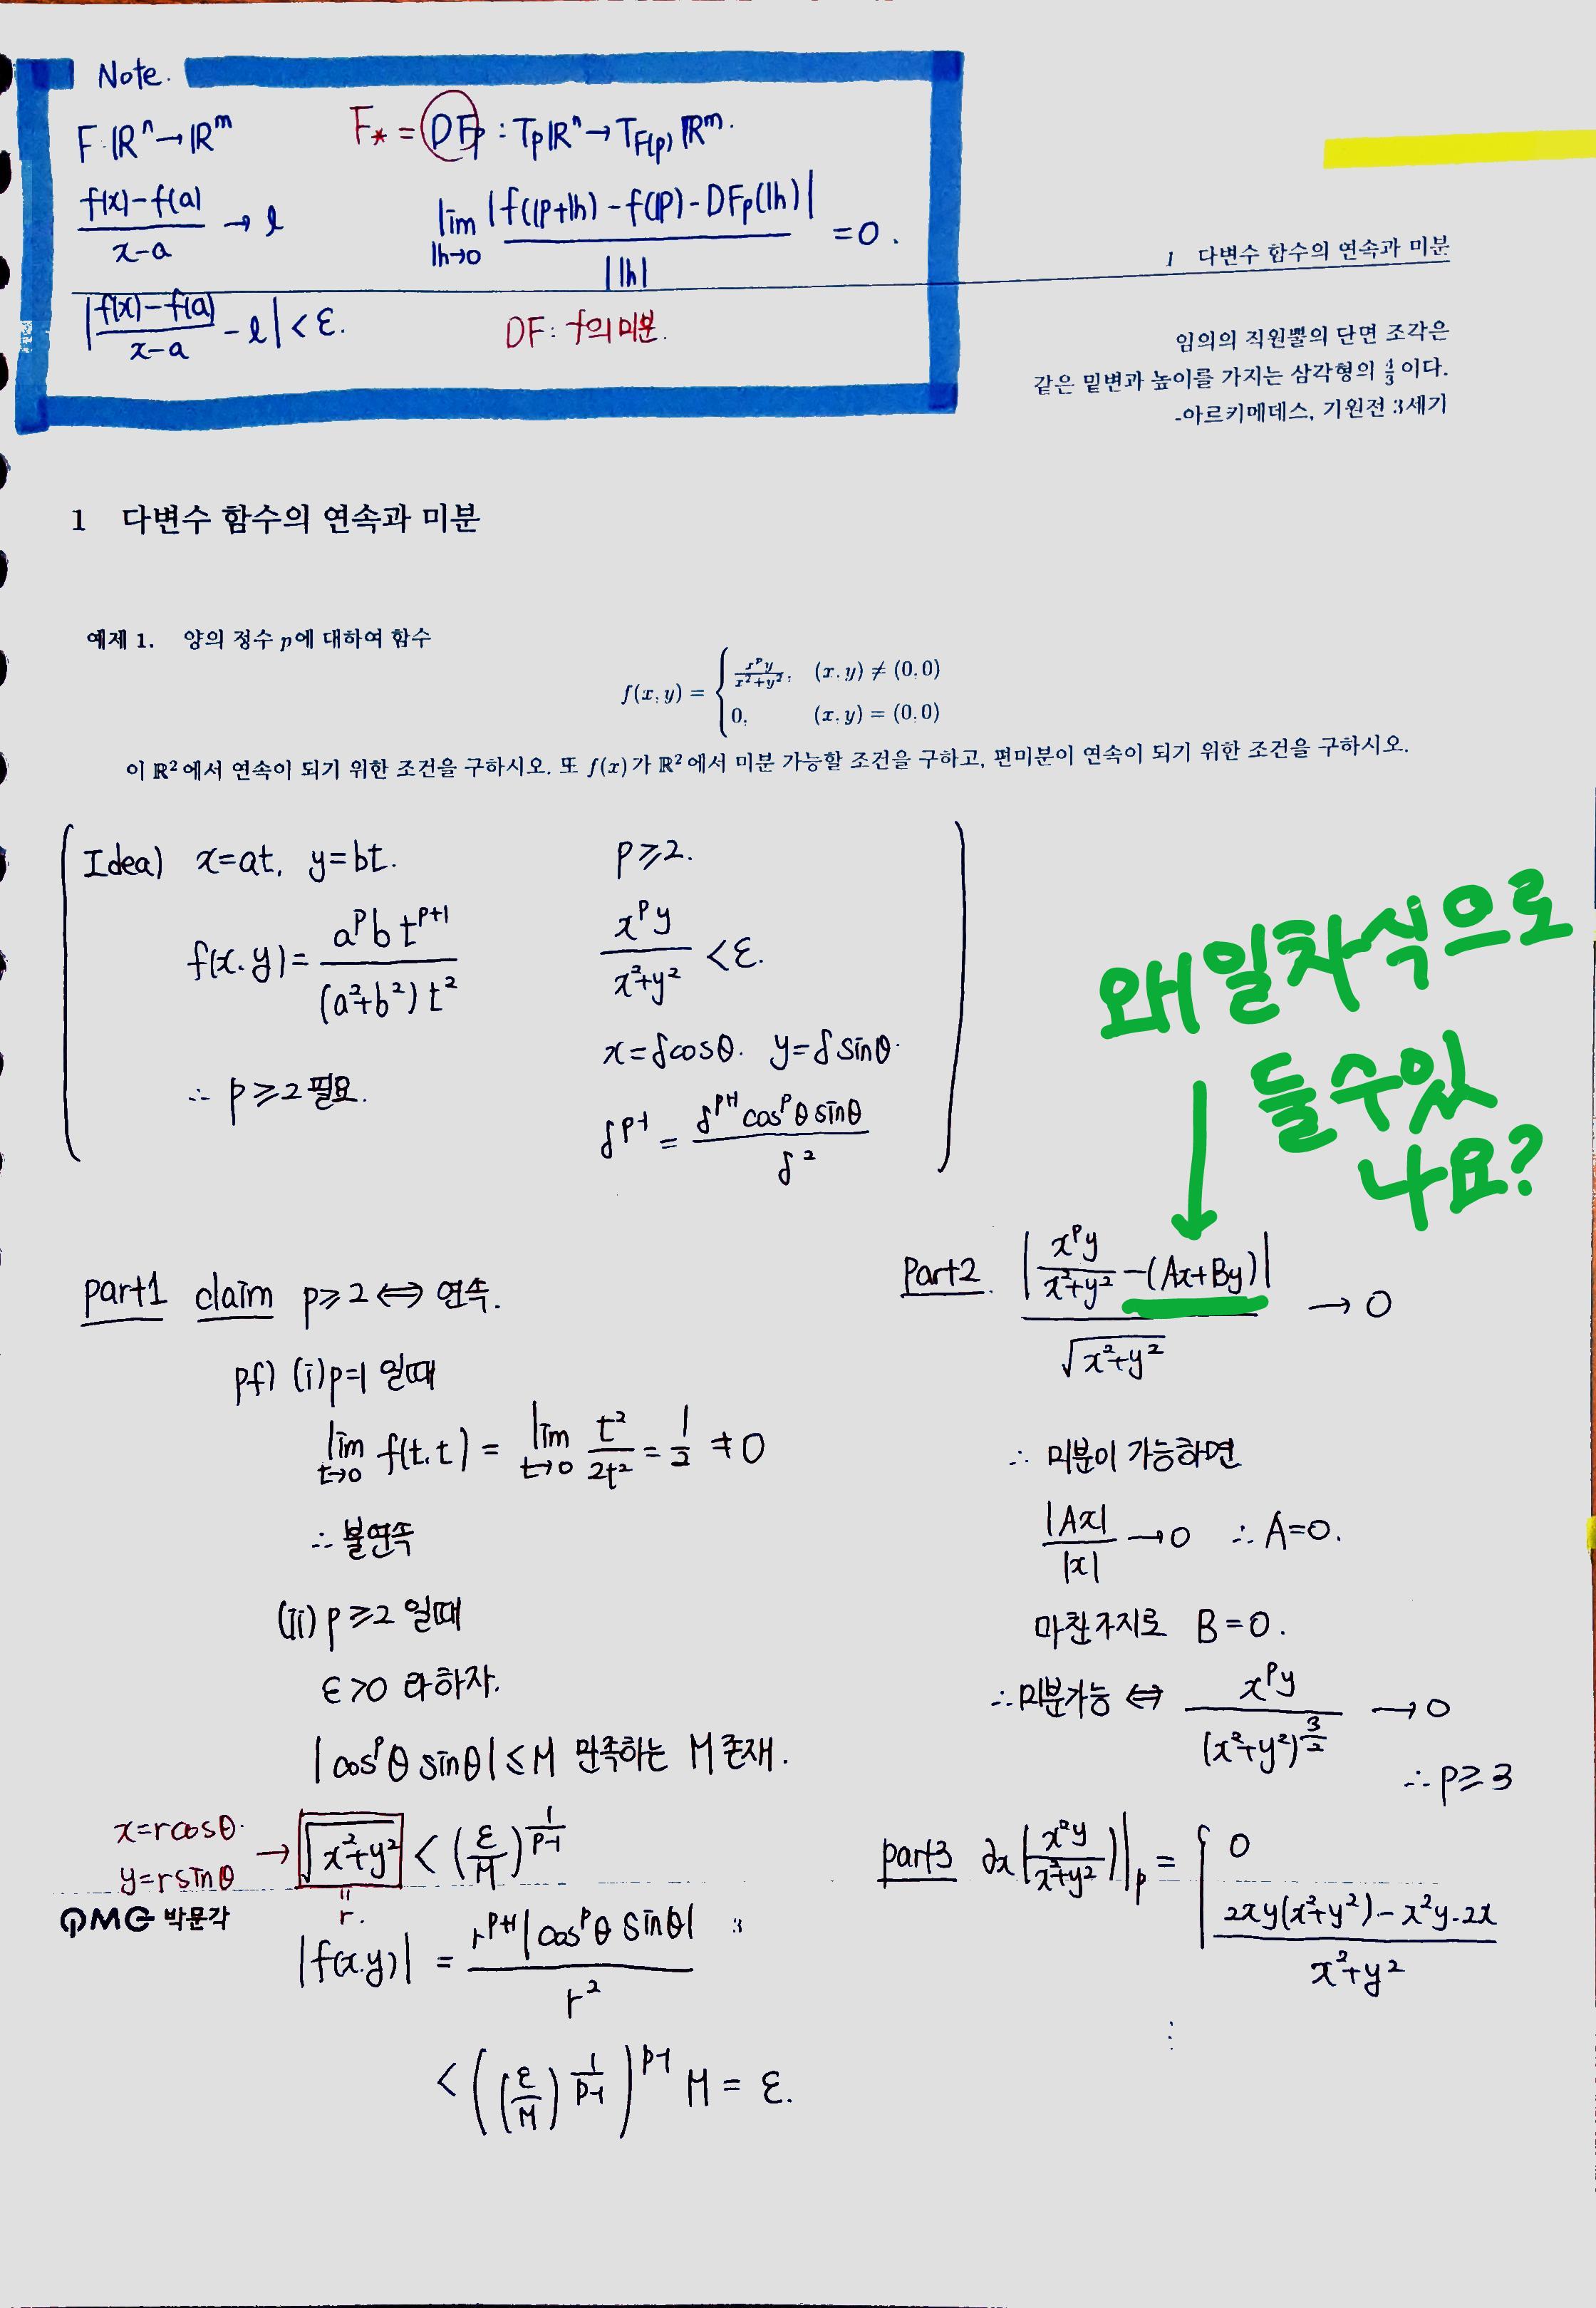 Note.
F: ℝⁿ→ℝᵐ
F⁎ = DFp : Tpℝⁿ → T_F(p) ℝᵐ.
(f(x)-f(a))/(x-a) → l
lim_{lh→0} |f(lp+lh) - f(lp) - DFp(lh)| / |lh| = 0.
|(f(x)-f(a))/(x-a) - l| < ε.
DF: f의 미분.
1 다변수 함수의 연속과 미분
임의의 직원뿔의 단면 조각은
같은 밑변과 높이를 가지는 삼각형의 4/3 이다.
-아르키메데스, 기원전 3세기
1 다변수 함수의 연속과 미분
예제 1. 양의 정수 p에 대하여 함수
f(x,y) = { x^p y/(x²+y²), (x,y) ≠ (0,0)
0, (x,y) = (0,0)
이 ℝ²에서 연속이 되기 위한 조건을 구하시오. 또 f(x)가 ℝ²에서 미분 가능할 조건을 구하고, 편미분이 연속이 되기 위한 조건을 구하시오.
Idea) x=at, y=bt.
f(x,y) = a^p b t^{p+1} / (a²+b²)t²
∴ p≥2 필요.
p≥2.
x^p y/(x²+y²) < ε.
x=δcosθ. y=δsinθ.
δ^{p-1} = δ^{p+1} cos^p θ sinθ / δ²
왜 일차식으로
둘 수 있
나요?
part1 claim p≥2 ⇔ 연속.
pf) (i) p=1 일때
lim_{t→0} f(t,t) = lim_{t→0} t²/2t² = 1/2 ≠ 0
∴ 불연속
(ii) p≥2 일때
ε>0 라하자.
|cos^p θ sinθ| ≤ M 만족하는 M 존재.
x=rcosθ.
y=rsinθ
→ √(x²+y²) < (ε/M)^{1/(p-1)}
"
r.
|f(x,y)| = r^{p+1}|cos^p θ sinθ| / r²
< ((ε/M)^{1/(p-1)})^{p-1} M = ε.
Part2. |x^p y/(x²+y²) - (Ax+By)| / √(x²+y²) → 0
∴ 미분이 가능하면
|Ax|/|x| → 0 ∴ A=0.
마찬가지로 B=0.
∴ 미분가능 ⇔ x^p y/(x²+y²)^{3/2} → 0
∴ p≥3
part3 ∂x(x²y/(x²+y²))|p = { 0
(2xy(x²+y²) - x²y·2x)/(x²+y²)
⋮
PMG 박문각
3